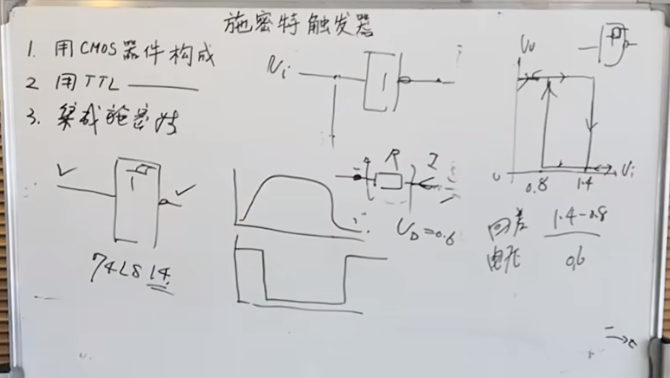 施密特触发器
1. 用CMOS器件构成
2 用TTL
3. 集成施密特
Vi
1
R
I
UD=0.6
1
74LS14
Vo
Vi
0
0.8
1.4
回差 1.4-0.8
电压 0.6